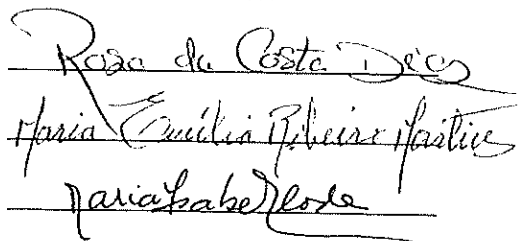 Rosa da Costa Dias
Maria Emília Ribeiro Martins
Maria Isabel